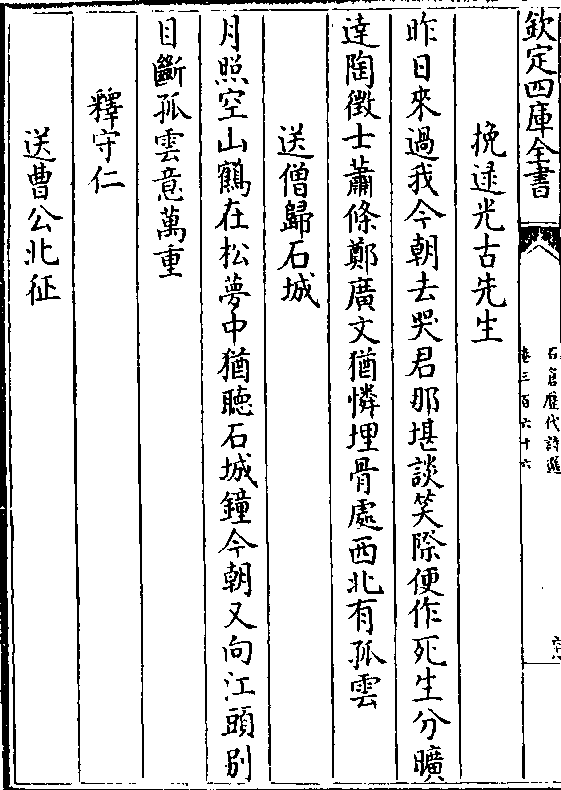 欽定四庫全書
石倉歷代詩選
卷三百六十六
挽逺光古先生
昨日來過我今朝去哭君那堪談笑際便作死生分曠
達陶徵士蕭條鄭廣文猶憐埋骨處西北有孤雲
送僧歸石城
月照空山鶴在松夢中猶聽石城鐘今朝又向江頭别
目斷孤雲意萬重
釋守仁
送曹公北征